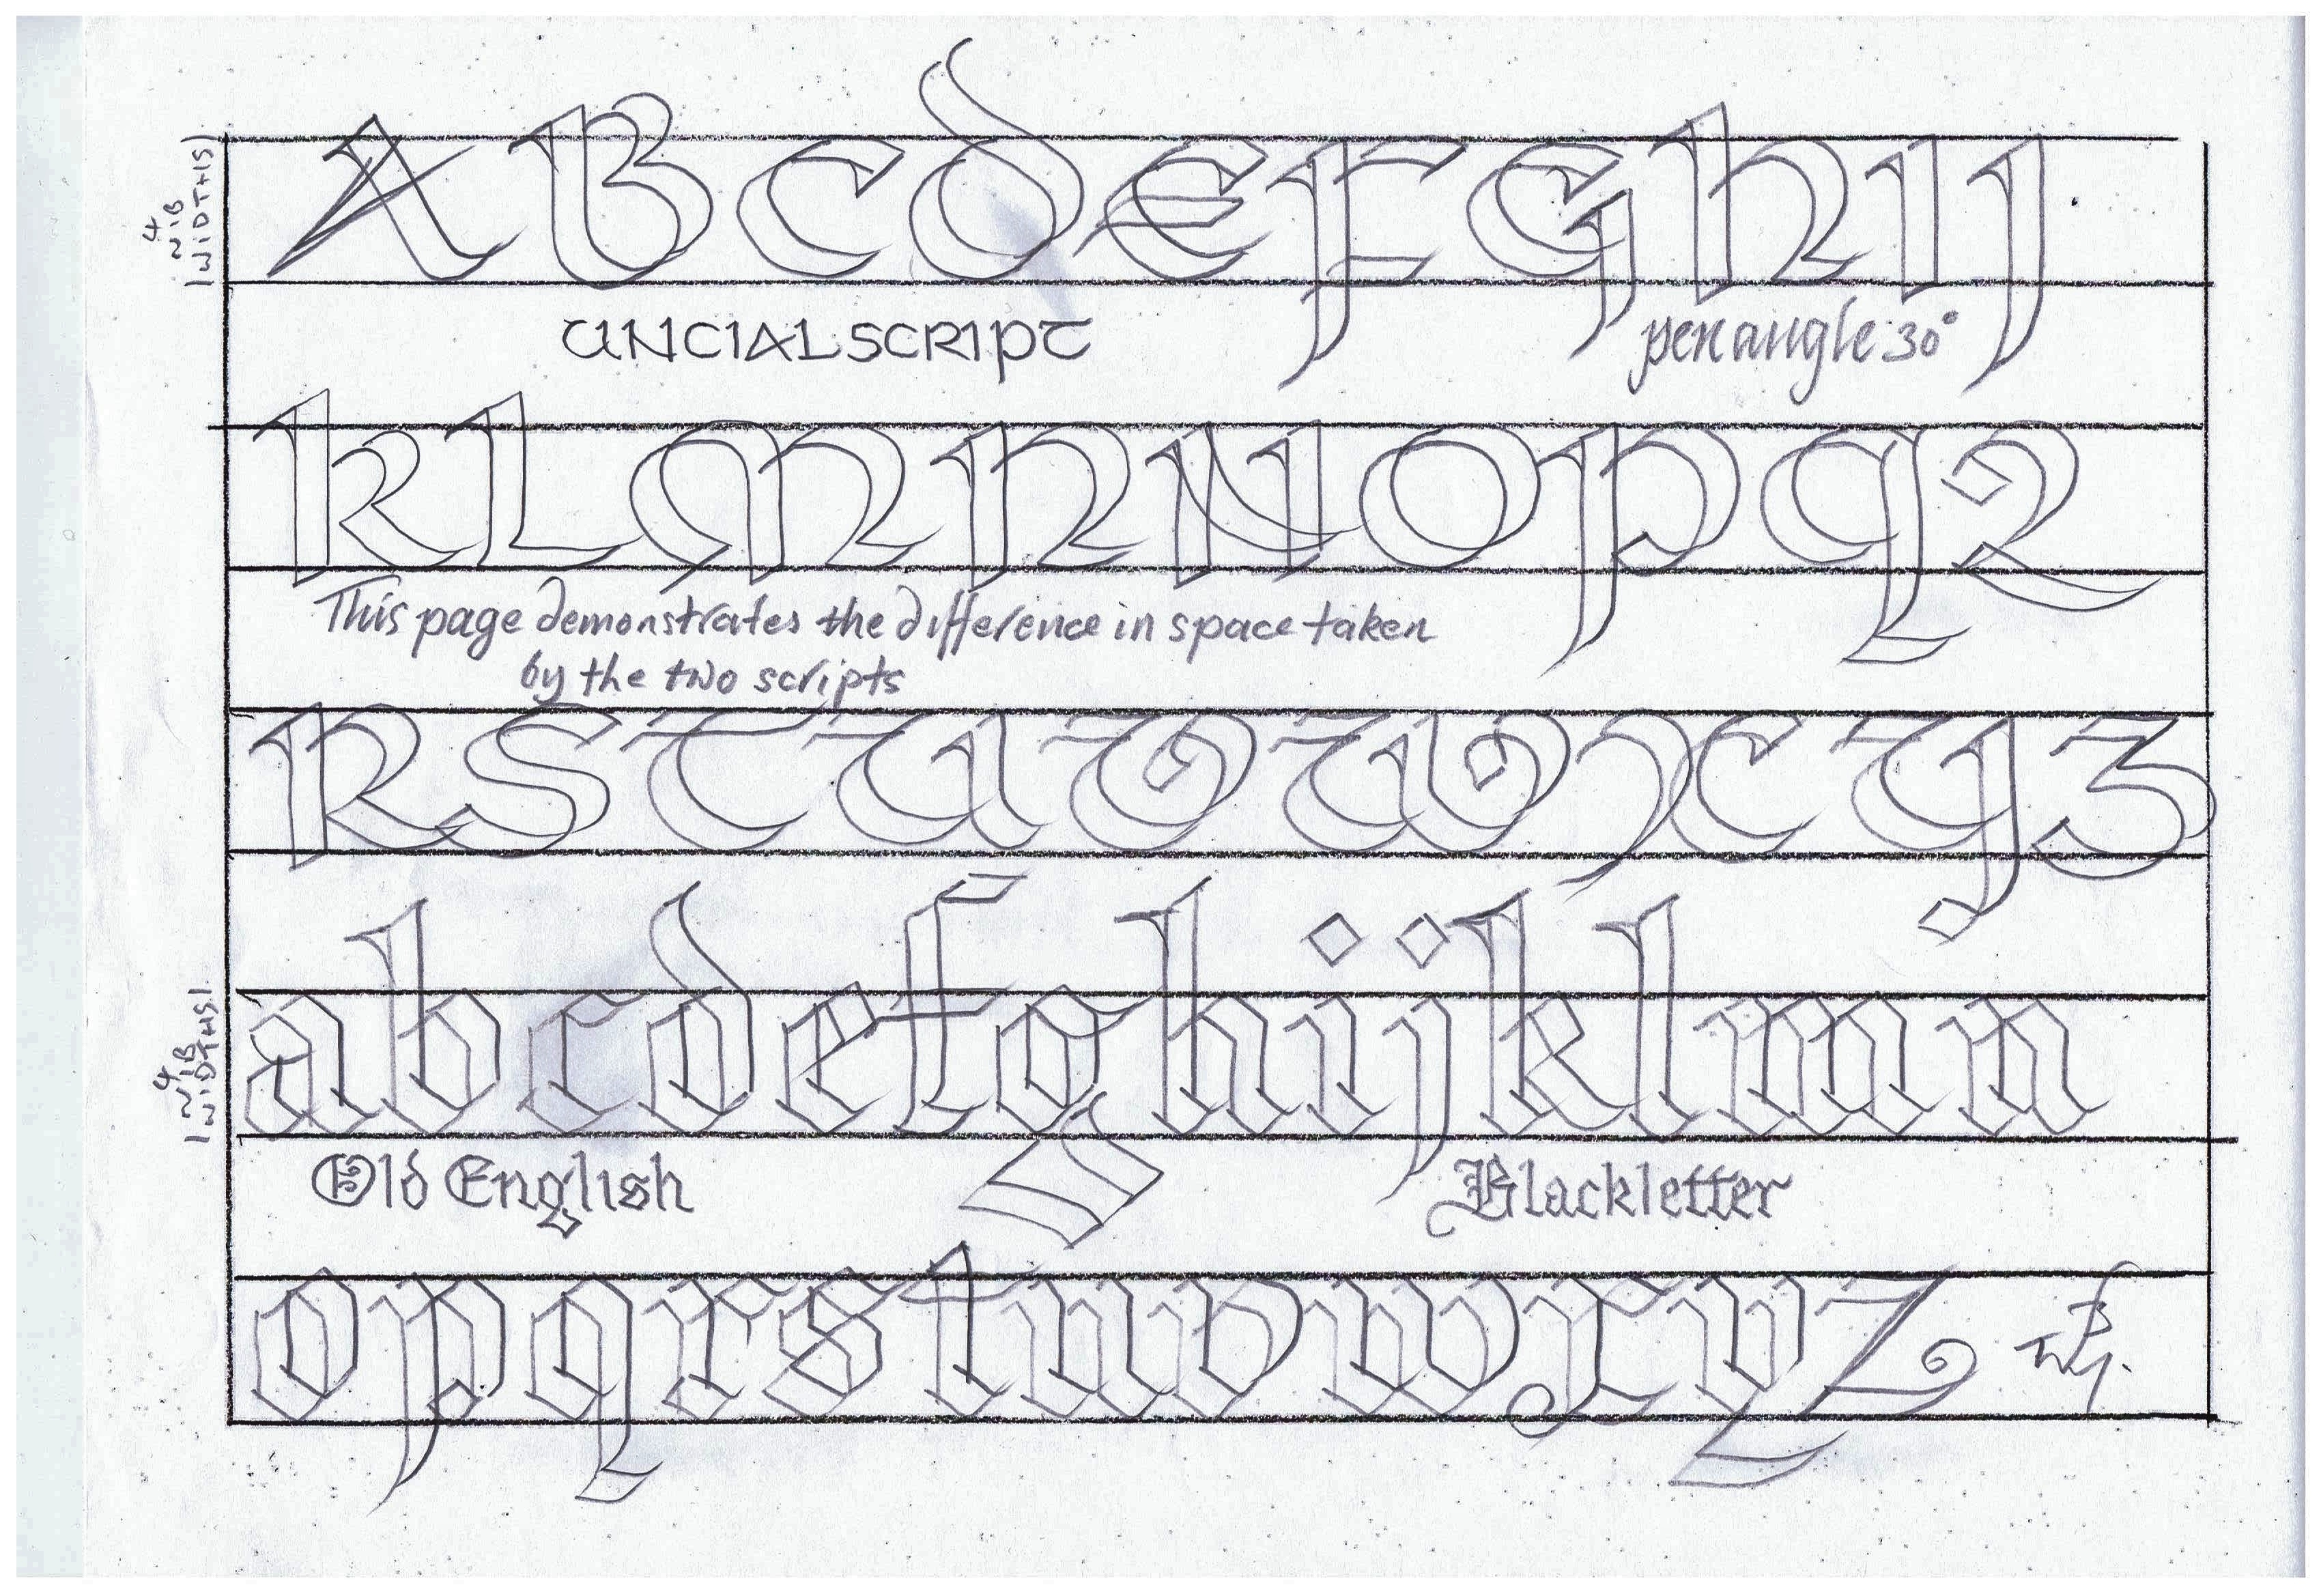 4 NIB WIDTHS
A B C D E F G h I J
UNCIAL SCRIPT pen angle 30°
K L M N N O P q 2
This page demonstrates the difference in space taken
by the two scripts
R S T U V W X Y Z
4 NIB WIDTHS
a b c d e f g h i j k l m n
Old English Blackletter
o p q r s t u v w x y z